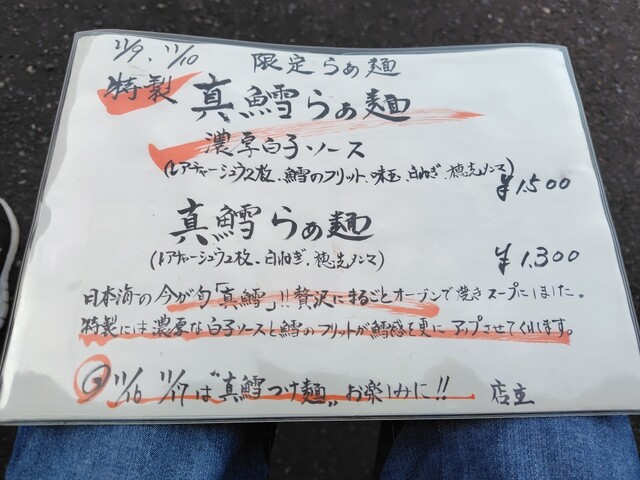 11/9、11/10 限定らぁ麺
特製 真鱈らぁ麺
濃厚白子ソース
(レアチャーシュウ2枚、鱈のフリット、味玉、白ねぎ、穂先メンマ)
¥1.500
真鱈らぁ麺
(レアチャーシュウ2枚、白ねぎ、穂先メンマ)
¥1.300
日本海の今が旬「真鱈」!!贅沢にまるごとオーブンで焼きスープにしました。
特製には濃厚な白子ソースと鱈のフリットが鱈感を更にアップさせてくれます。
11/16 11/17は"真鱈つけ麺"お楽しみに!! 店主